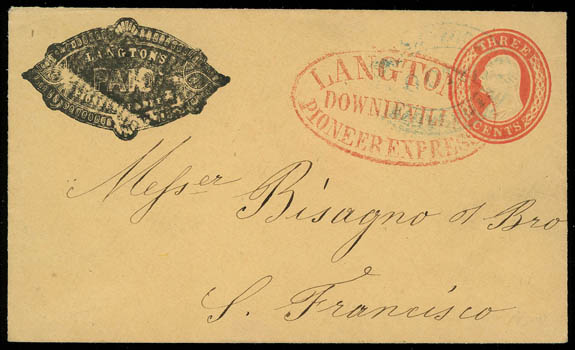 LANGTON'S
PAID
LANGTON
DOWNIEVILLE
PIONEER EXPRESS
THREE
CENTS
Messer Bisagno & Bro
S. Francisco